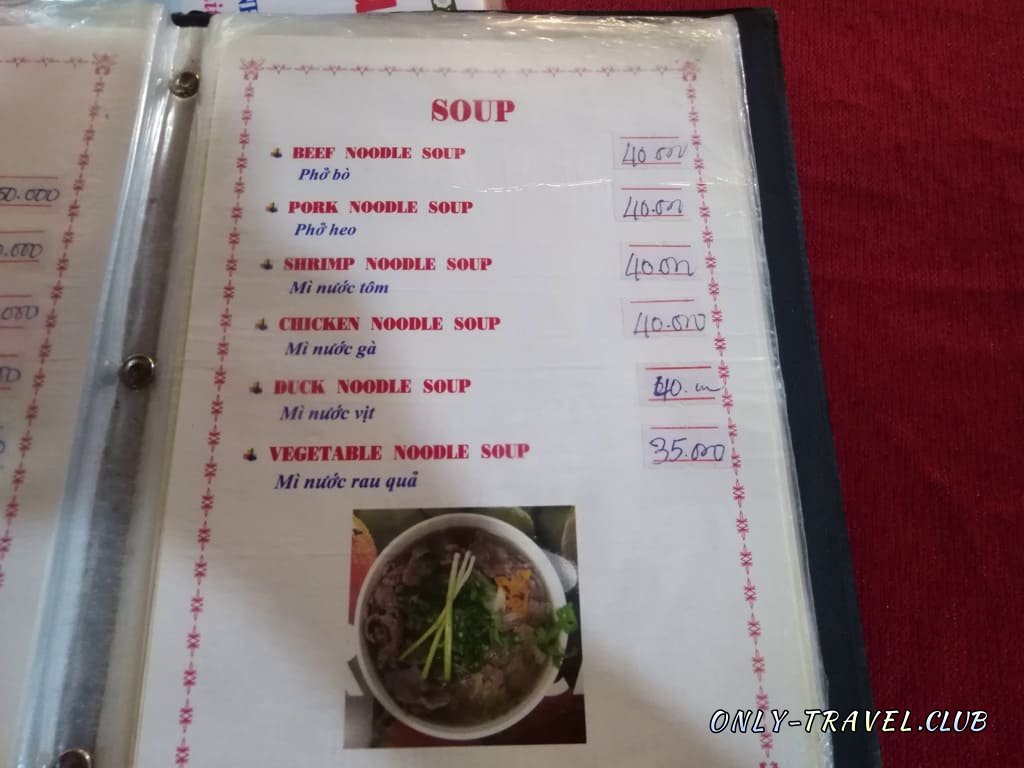 SOUP
BEEF NOODLE SOUP 40.000
Phở bò
PORK NOODLE SOUP 40.000
Phở heo
SHRIMP NOODLE SOUP 40.000
Mì nước tôm
CHICKEN NOODLE SOUP 40.000
Mì nước gà
DUCK NOODLE SOUP 40.
Mì nước vịt
VEGETABLE NOODLE SOUP 35.000
Mì nước rau quả
ONLY-TRAVEL.CLUB